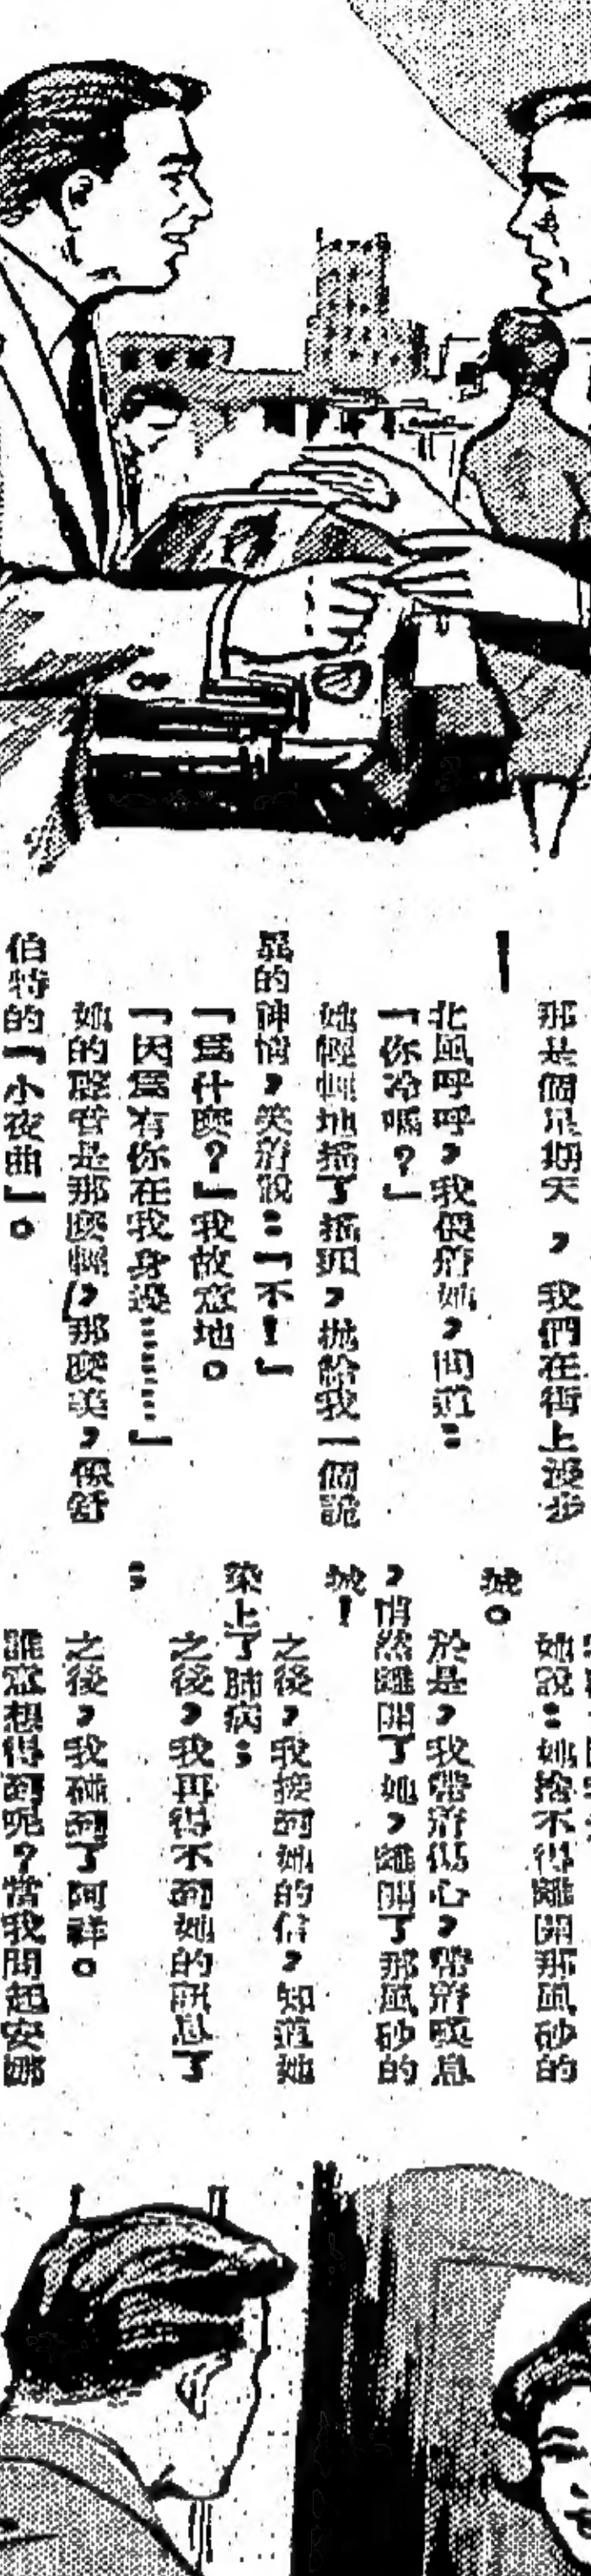 那是個星期天，我們在街上漫步
！
北風呼呼，我偎着她，問道：
「你冷嗎？」
她輕輕地搖了搖頭，拋給我一個詭
異的神情，笑着說：「不！」
「爲什麽？」我故意地。
「因爲有你在我身邊…………」
她的聲音是那麽輕，那麽美，像舒
伯特的「小夜曲」。
她說：她捨不得離開那風砂的
城。
於是，我帶着傷心，帶着嘆息
，悄然離開了她，離開了那風砂的
城！
之後，我接到她的信，知道她
染上了肺病；
之後，我再得不到她的訊息了
；
之後，我碰到了阿祥。
誰意想得到呢？當我問起安娜